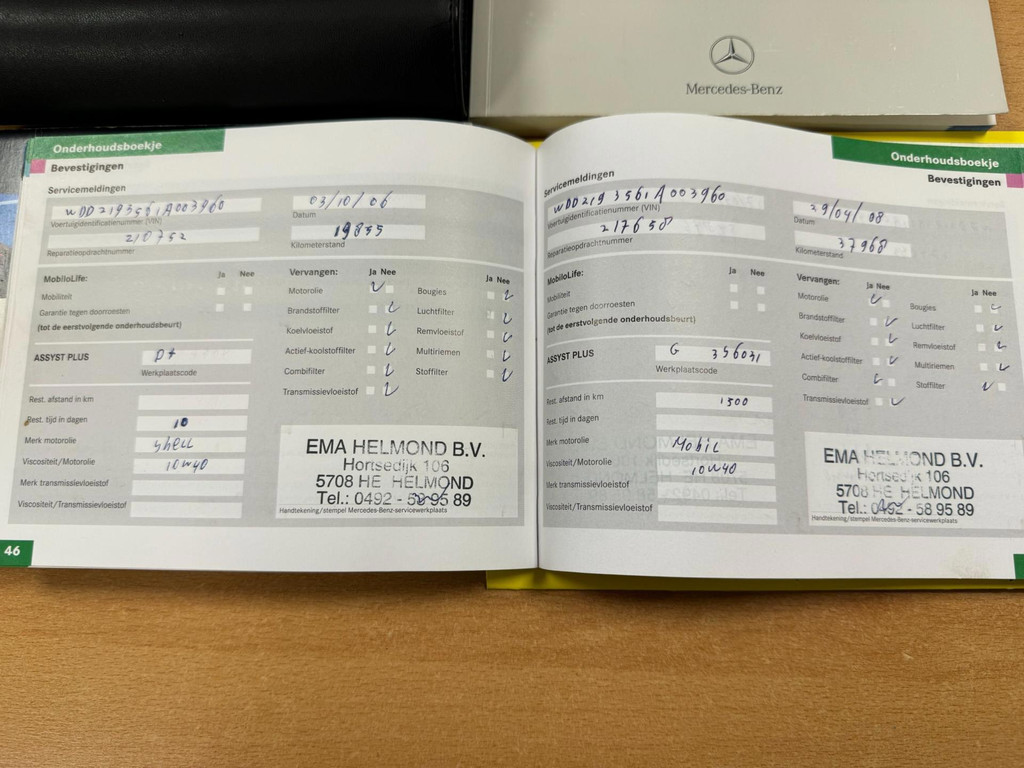 Mercedes-Benz
Onderhoudsboekje
Bevestigingen
Servicemeldingen
WDD2193561A003960
Voertuigidentificatienummer (VIN)
03/10/06
Datum
210752
Reparatieopdrachtnummer
19835
Kilometerstand
MobiloLife:
Ja Nee
Mobiliteit
Garantie tegen doorroesten
(tot de eerstvolgende onderhoudsbeurt)
Vervangen:
Ja Nee
Ja Nee
Motorolie
Bougies
Brandstoffilter
Luchtfilter
Koelvloeistof
Remvloeistof
Actief-koolstoffilter
Multiriemen
Combifilter
Stoffilter
Transmissievloeistof
ASSYST PLUS
Werkplaatscode
Rest. afstand in km
Rest. tijd in dagen
10
Merk motorolie
Shell
Viscositeit/Motorolie
10W40
Merk transmissievloeistof
Viscositeit/Transmissievloeistof
EMA HELMOND B.V.
Hortsedijk 106
5708 HE HELMOND
Tel.: 0492 - 58 95 89
Handtekening/stempel Mercedes-Benz-servicewerkplaats
46
Onderhoudsboekje
Bevestigingen
Servicemeldingen
WDD2193561A003960
Voertuigidentificatienummer (VIN)
29/04/08
Datum
217658
Reparatieopdrachtnummer
37968
Kilometerstand
MobiloLife:
Ja Nee
Mobiliteit
Garantie tegen doorroesten
(tot de eerstvolgende onderhoudsbeurt)
Vervangen:
Ja Nee
Ja Nee
Motorolie
Bougies
Brandstoffilter
Luchtfilter
Koelvloeistof
Remvloeistof
Actief-koolstoffilter
Multiriemen
Combifilter
Stoffilter
Transmissievloeistof
ASSYST PLUS
G 356031
Werkplaatscode
Rest. afstand in km
1500
Rest. tijd in dagen
Merk motorolie
Mobil
Viscositeit/Motorolie
10W40
Merk transmissievloeistof
Viscositeit/Transmissievloeistof
EMA HELMOND B.V.
Hortsedijk 106
5708 HE HELMOND
Tel.: 0492 - 58 95 89
Handtekening/stempel Mercedes-Benz-servicewerkplaats